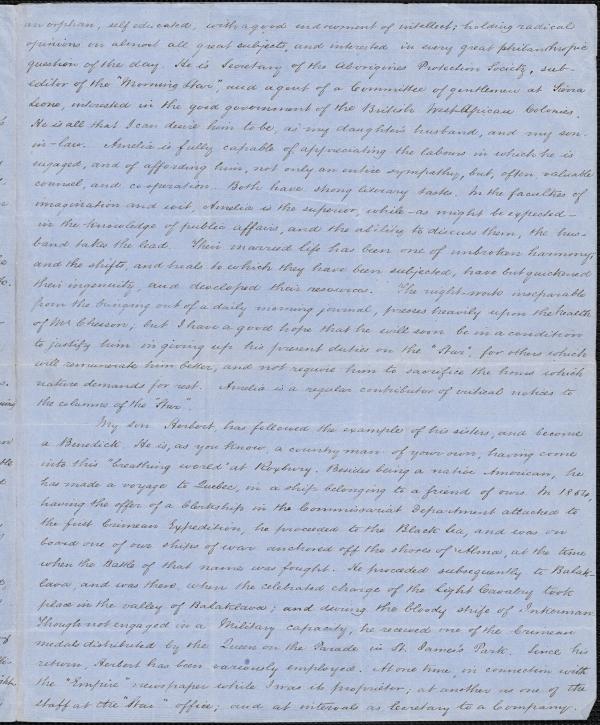 an orphan, self educated, with a good endowment of intellect; holding radical
opinions on almost all great subjects, and interested in every great philanthropic
question of the day. He is Secretary of the Aborigines Protection Society, sub-
editor of the "Morning Star", and agent of a Committee of gentlemen at Sierra
Leone, interested in the good government of the British West African Colonies.
He is all that I can desire him to be, as my daughter's husband, and my son-
in-law. Amelia is fully capable of appreciating the labours in which he is
engaged, and of affording him, not only an entire sympathy, but, often valuable
counsel, and co-operation. Both have strong literary taste. In the faculties of
imagination and wit, Amelia is the superior, while - as might be expected -
in the knowledge of public affairs, and the ability to discuss them, the hus-
band takes the lead. Their married life has been one of unbroken harmony,
and the shifts, and trials to which they have been subjected, have but quickened
their ingenuity, and developed their resources. The night-work inseparable
from the bringing out of a daily morning journal, presses heavily upon the health
of Mr Chesson; but I have a good hope that he will soon be in a condition
to justify him in giving up his present duties on the "Star", for others which
will remunerate him better, and not require him to sacrifice the hours which
nature demands for rest. Amelia is a regular contributor of critical notices to
the columns of the "Star".
My son Herbert, has followed the example of his sisters, and become
a Benedick. He is, as you know, a countryman of your own, having come
into this "breathing world" at Roxbury. Besides being a native American, he
has made a voyage to Quebec, in a ship belonging to a friend of ours. In 1854,
having the offer of a Clerkship in the Commissariat Department attached to
the first Crimean Expedition, he proceeded to the Black Sea, and was on
board one of our ships of war anchored off the shores of Alma, at the time
when the Battle of that name was fought. He proceeded subsequently to Balak-
lava, and was there, when the celebrated charge of the Light Cavalry took
place in the valley of Balaklava; and during the bloody strife of Inkerman.
Though not engaged in a Military capacity, he received one of the Crimean
medals distributed by the Queen on the Parade in St. James's Park. Since his
return, Herbert has been variously employed. At one time, in connection with
the "Empire" newspaper while I was its proprietor; at another as one of the
staff at the "Star" office; and at intervals as Secretary to a Company.